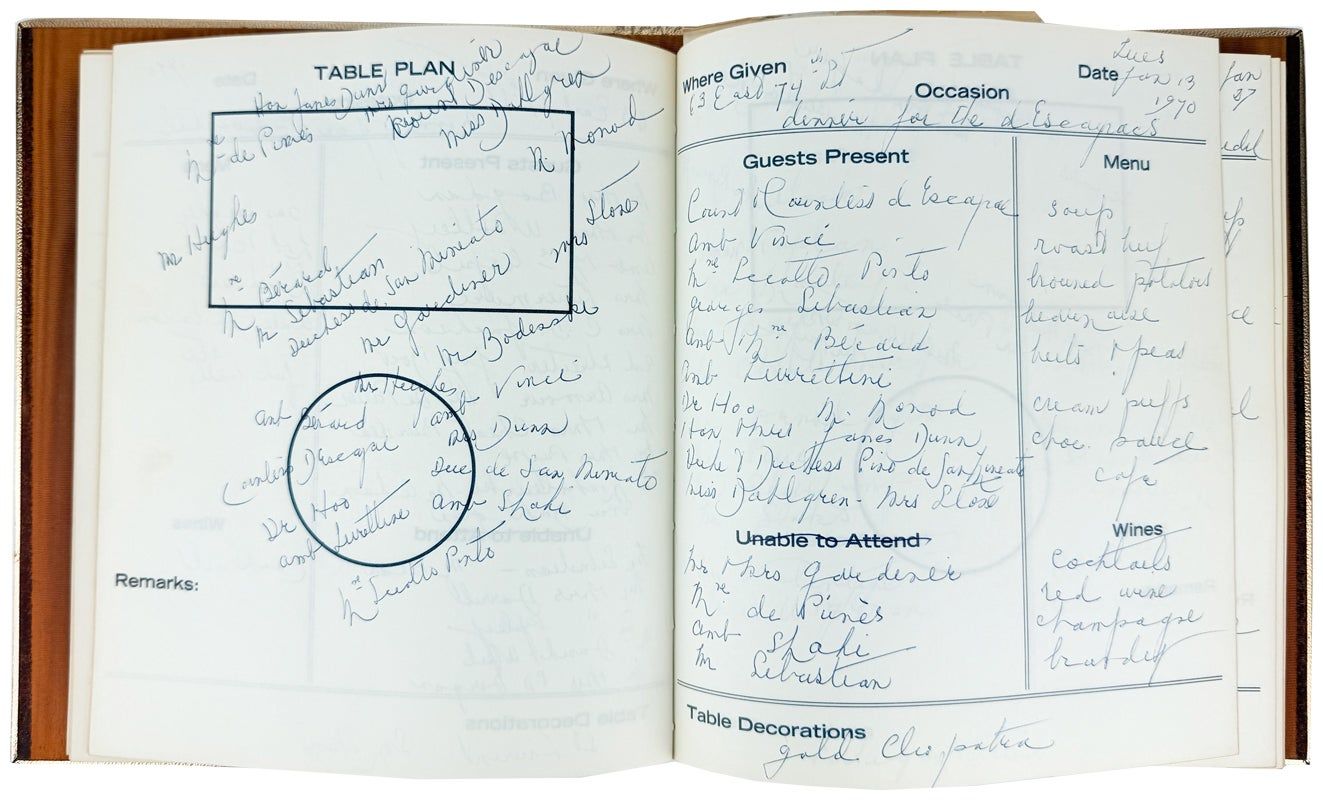 TABLE PLAN
Hon James Dunn
Mrs Gardiner
Count d'Escayrac
Miss Dahlgren
Mme de Pinès
M Monod
Mr Hughes
Mrs Stone
Mme Bérard
Mr Sebastian
Duchess de San Mineato
Mr Gardiner
Mr Hughes
Amb Vinci
Amb Bérard
Mrs Dunn
Countess d'Escayrac
Duc de San Mineato
Dr Hoo
Amb Shahi
Amb Turrettini
Mme Licotto Pinto
Remarks:
Where Given
63 East 74th St
Occasion
Date Tues
Jan 13
1970
dinner for the d'Escayracs
Guests Present
Count & Countess d'Escayrac
Amb Vinci
Mme Licotto Pinto
Georges Sebastian
Amb & Mme Bérard
Amb Turrettini
Dr Hoo Mr. Monod
Hon & Mrs James Dunn
Duke & Duchess Pino de San Mineato
Miss Dahlgren - Mrs Stone
Unable to Attend
Mr & Mrs Gardiner
Mme de Pinès
Amb Shahi
Mr Sebastian
Menu
soup
roast beef
browned potatoes
bearnaise
beets & peas
cream puffs
choc. sauce
café
Wines
Cocktails
red wine
champagne
brandy
Table Decorations
gold Cleopatra
Jan
27